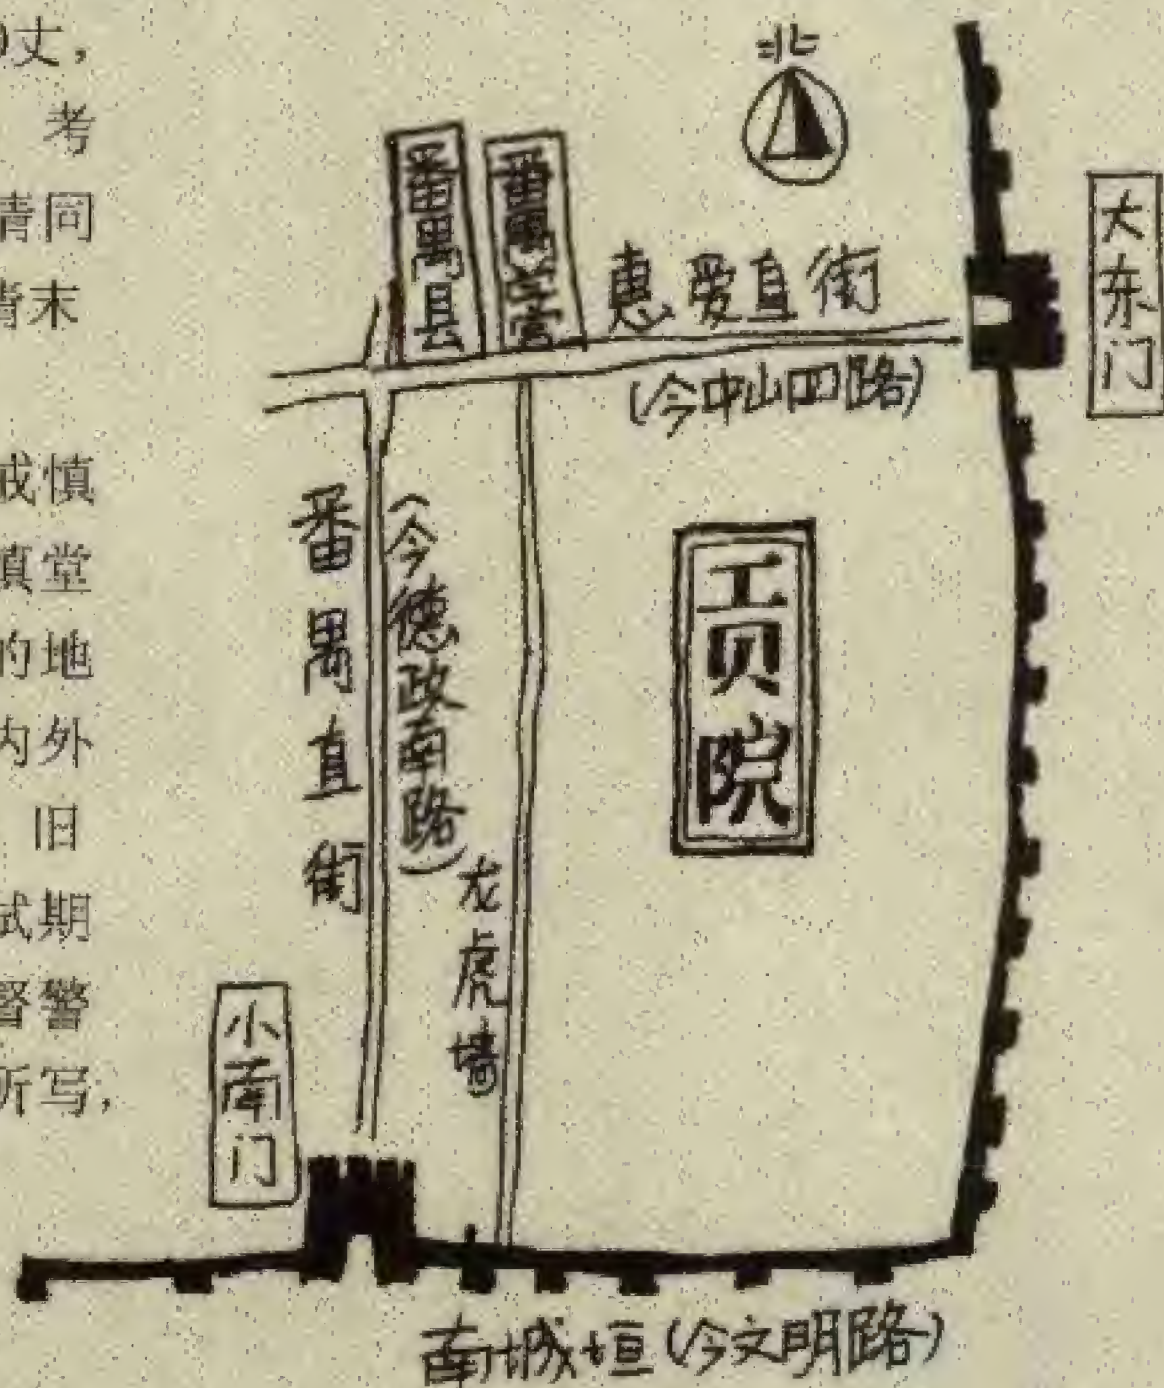 丈,
考
清同
清末
戒慎
慎堂
的地
内外
旧
试期
督警
所写,
北
番禺县
番禺学宫
惠爱直街
(今中山四路)
大东门
番禺直街
(今德政南路)
龙虎墙
贡院
小南门
南城垣(今文明路)